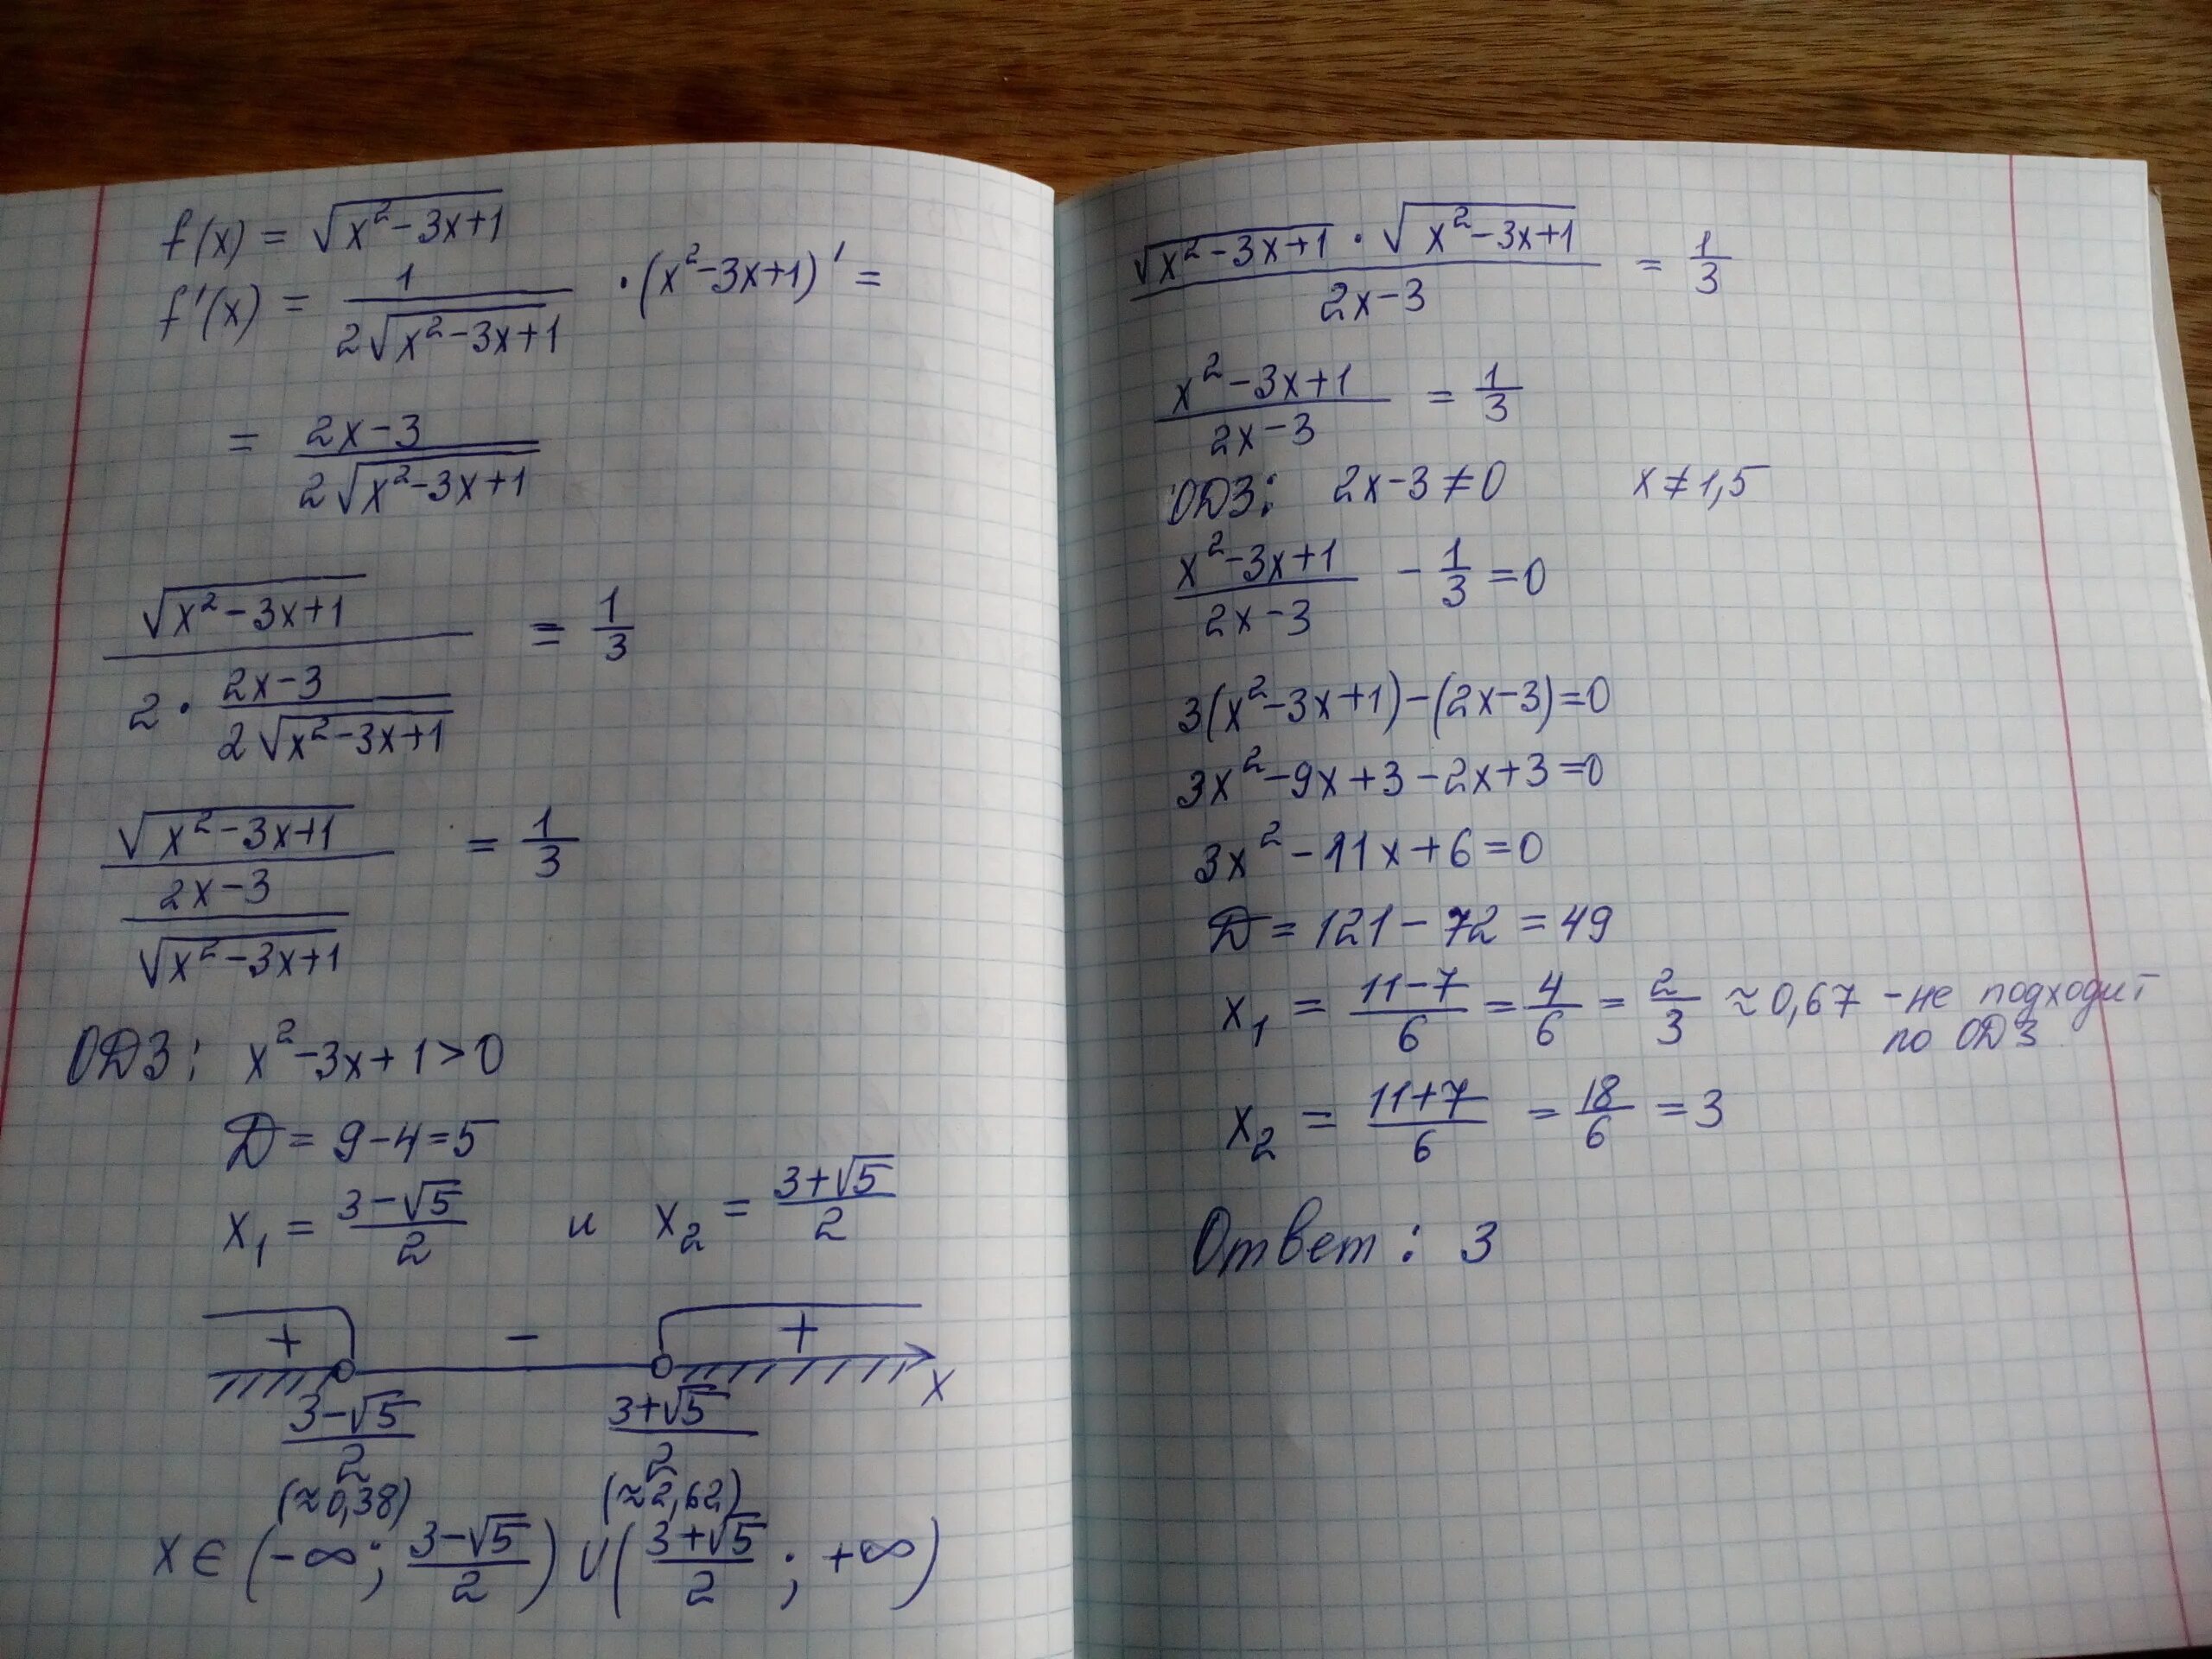 f(x) = √(x²-3x+1)
f'(x) = 1/(2√(x²-3x+1)) · (x²-3x+1)' =
= (2x-3)/(2√(x²-3x+1))
√(x²-3x+1) / (2 · (2x-3)/(2√(x²-3x+1))) = 1/3
√(x²-3x+1) / ((2x-3)/√(x²-3x+1)) = 1/3
ОДЗ: x²-3x+1>0
D = 9-4=5
x₁ = (3-√5)/2 и x₂ = (3+√5)/2
+ - +
(3-√5)/2 (3+√5)/2 x
(≈0,38) (≈2,62)
x∈(-∞; (3-√5)/2) ∪ ((3+√5)/2; +∞)
(√(x²-3x+1) · √(x²-3x+1))/(2x-3) = 1/3
(x²-3x+1)/(2x-3) = 1/3
ОДЗ: 2x-3≠0 x≠1,5
(x²-3x+1)/(2x-3) - 1/3 =0
3(x²-3x+1)-(2x-3)=0
3x²-9x+3-2x+3=0
3x²-11x+6=0
D = 121-72=49
x₁ = (11-7)/6 = 4/6 = 2/3 ≈0,67 - не подходит
по ОДЗ
x₂ = (11+7)/6 = 18/6 = 3
Ответ: 3